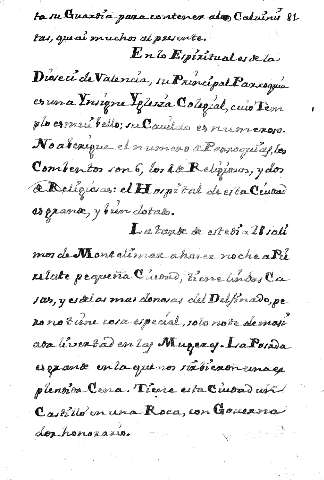 ta su Guardia para contener a los Calvinis 81
tas, que ai muchos al presente.
En lo Espiritual es de la
Diöseci de Valencia, su Principal Parroquia
es una Ynsigne Yglesia Colegial, cuio Tem
plo es mui bello; su Cavildo es numeroso.
No aberigue el numero de Parroquias, los
Combentos son 6, los 4 de Religiosos, y dos
de Religiosas: el Hospital de esta Ciudad
es grande, y bien dotado.
La tarde de este dia 28 sali
mos de Montelimar a hacer noche a Pi
relate pequeña Ciudad, tiene lindas Ca
sas, y es de las mas donosas del Delfinado, pe
ro no tiene cosa especial, solo note demasi
ada livertad en las Mugeres. La Posada
es grande en la que nos sirbieron una ex
plendida Cena. Tiene esta Ciudad un
Castillo en una Roca, con Governa
dor honorario.